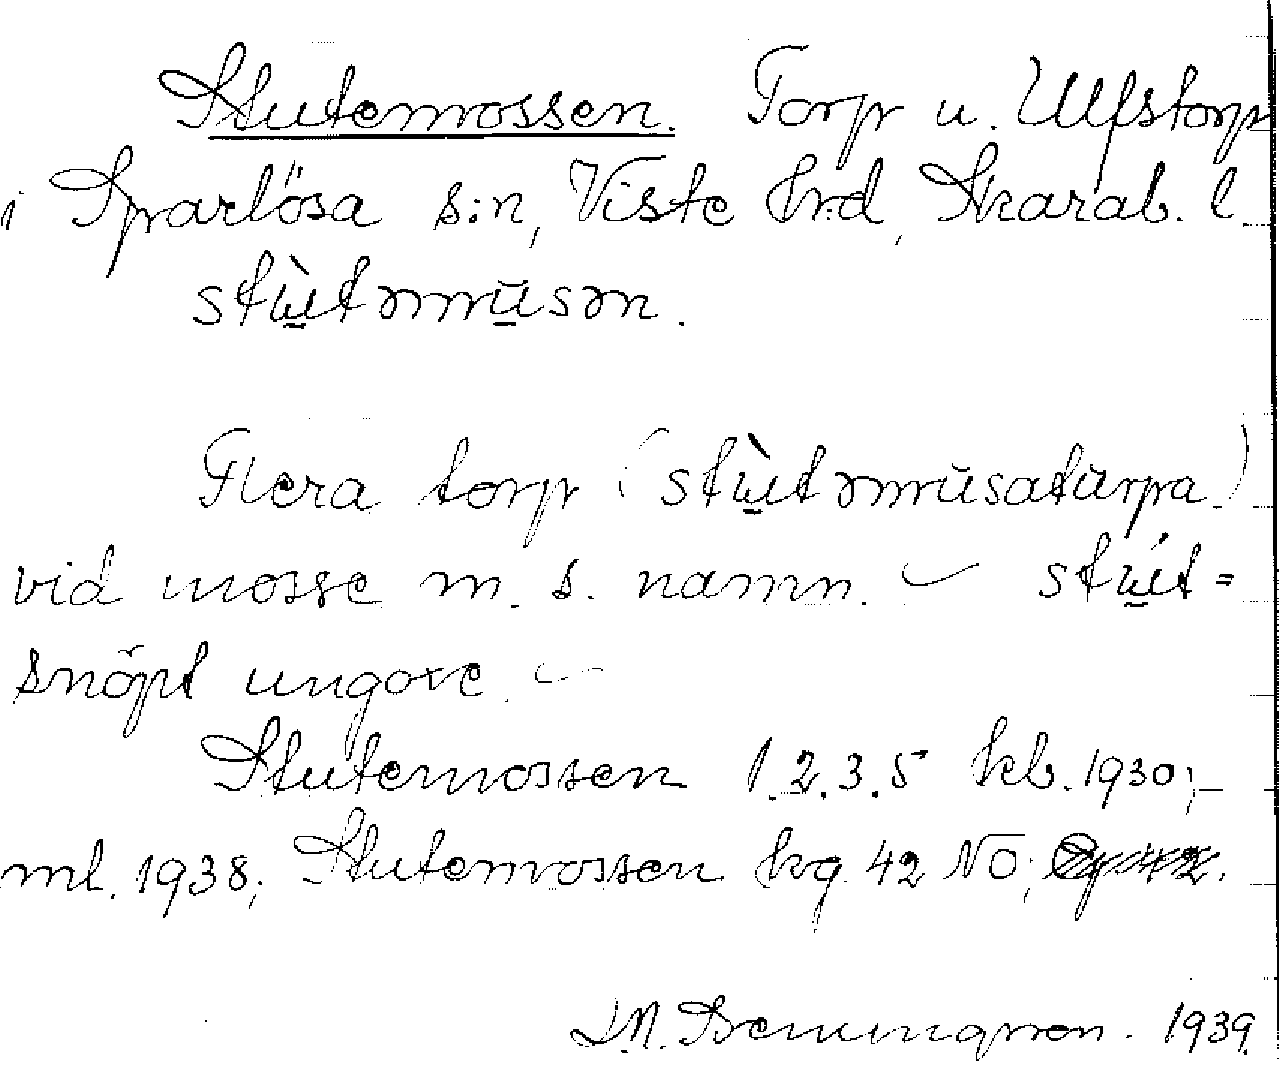 Stutemossen. Torp u. Ulfstorp
i Sparlösa s:n, Viste hrd, Skarab. l.
stùtəmŭsən.
Flera torp (stùtəmŭsatŭrpa)
vid mosse m. s. namn. – stút=
snöpt ungoxe. –
Stutemossen 1.2.3.5 kb. 1930;
ml. 1938; Stutemossen kg 42 NO;
1939.